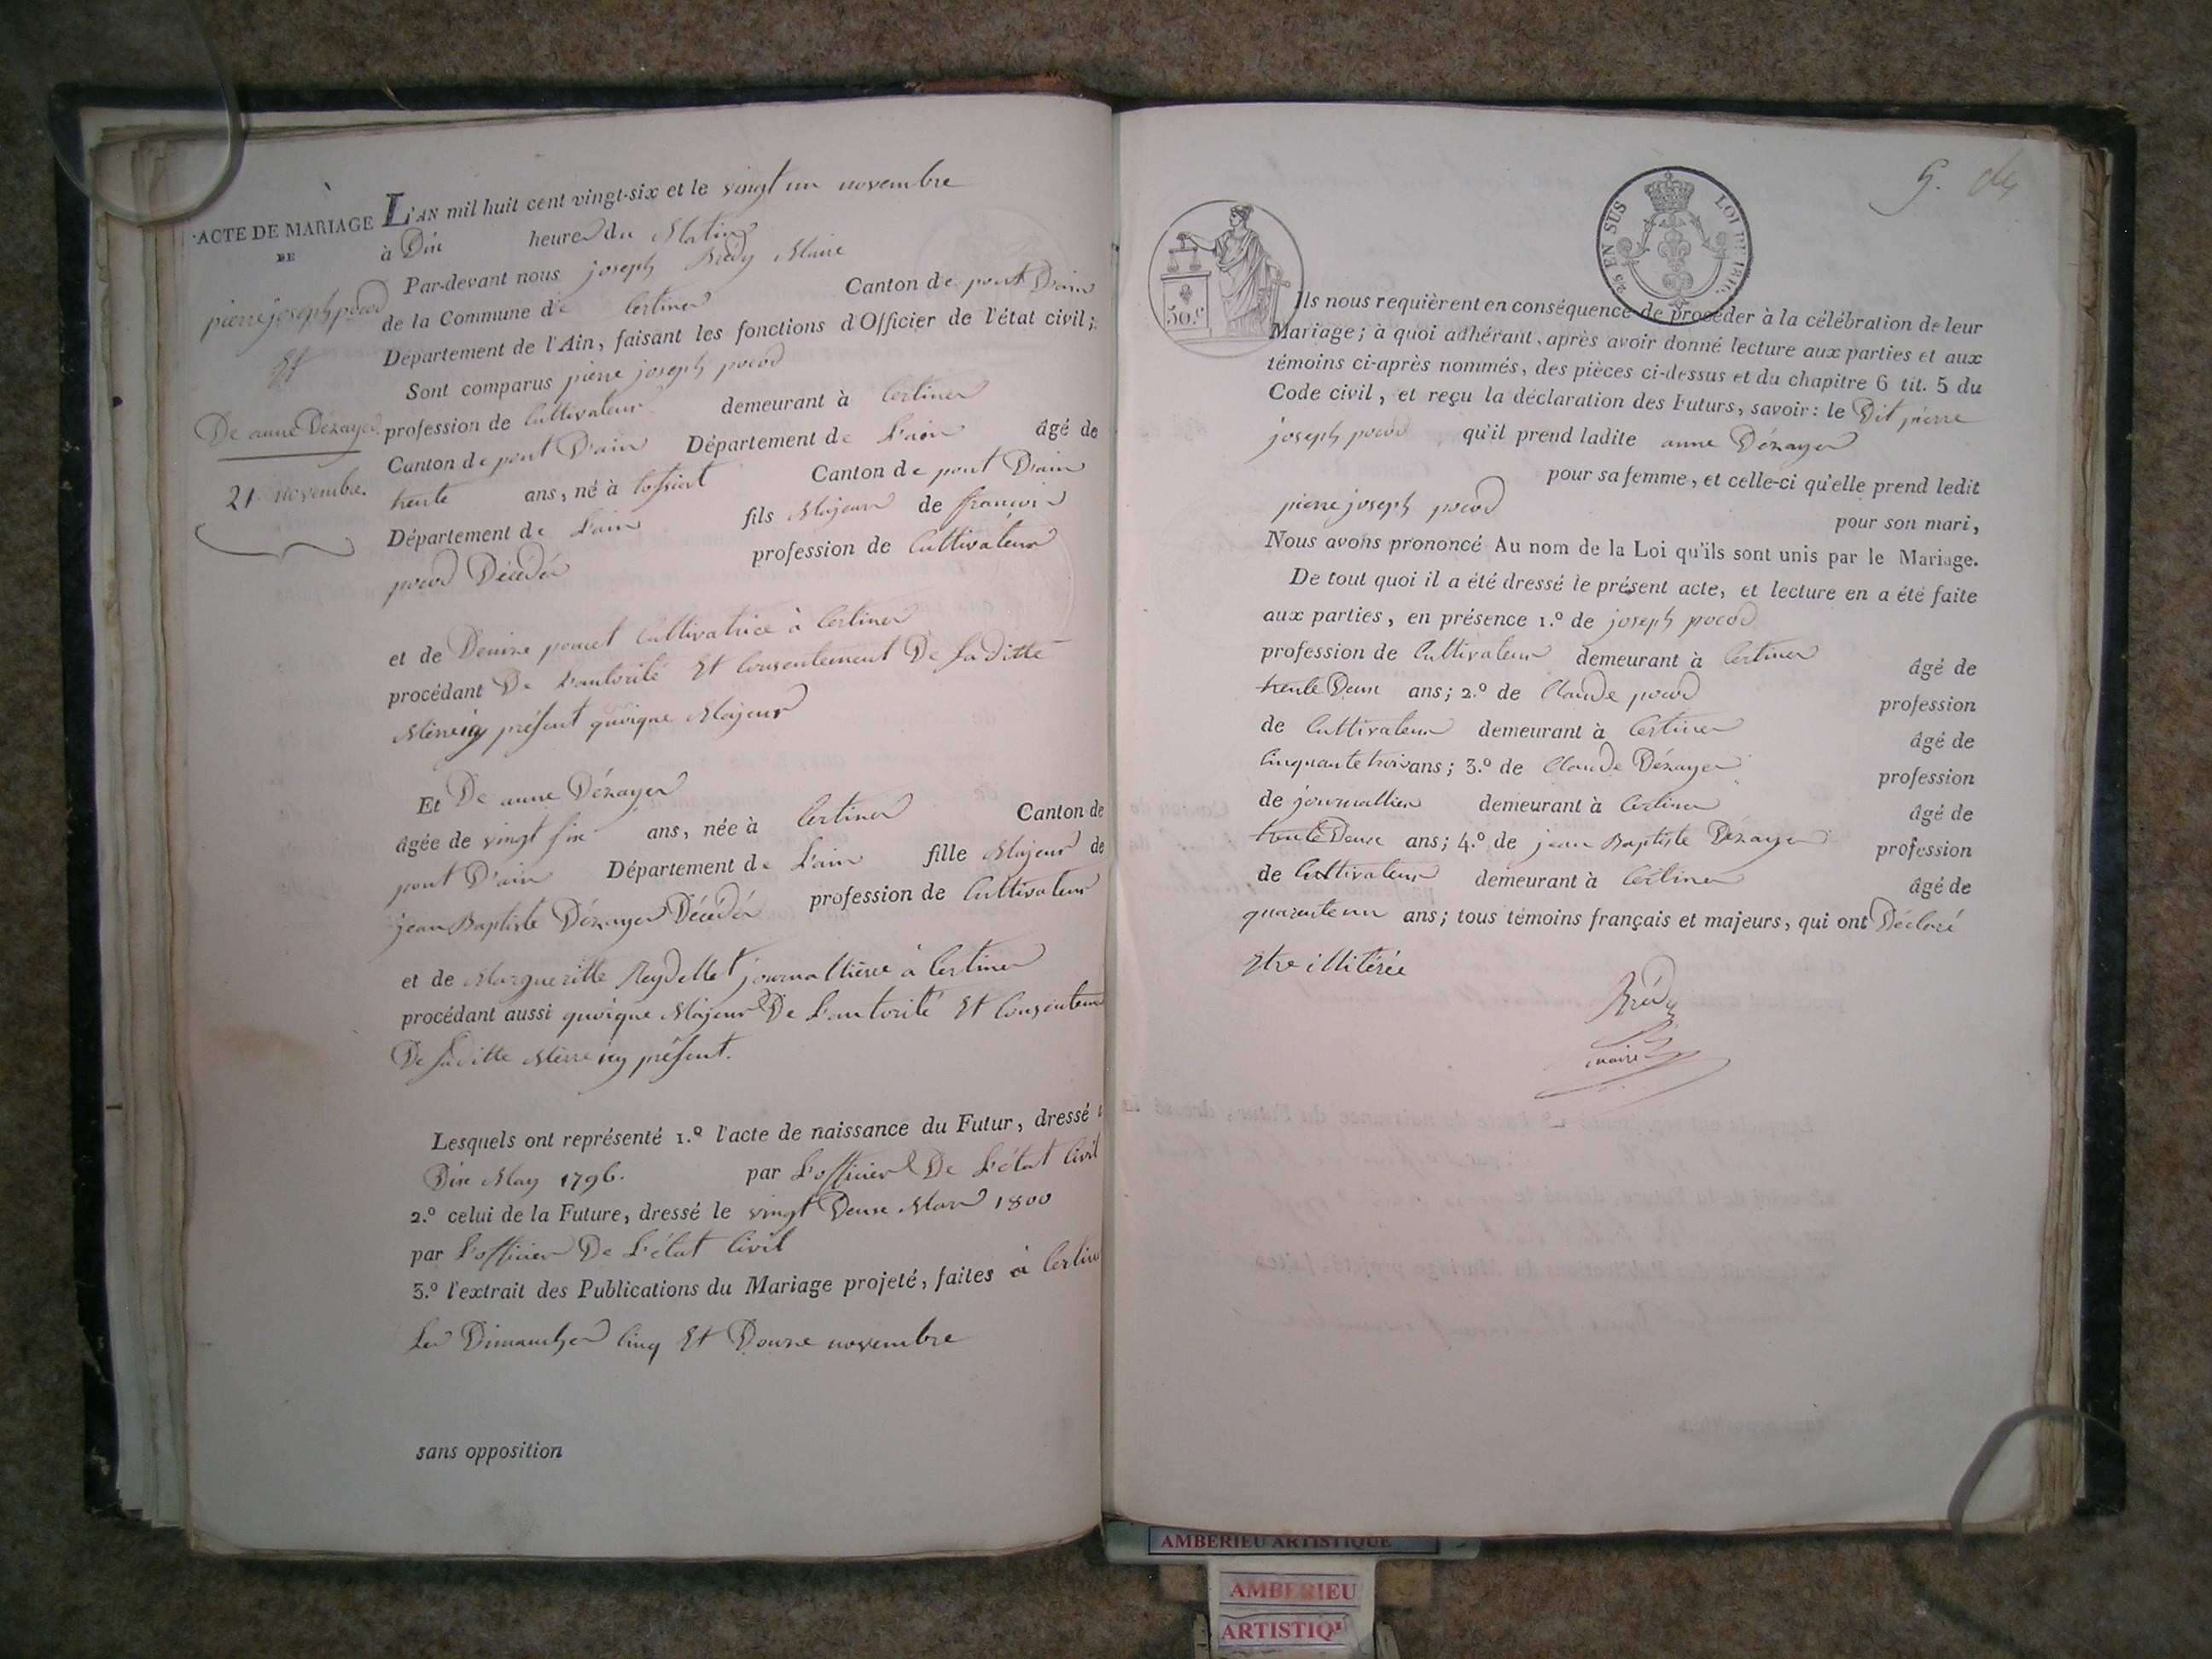 ACTE DE MARIAGE
DE
pierre joseph pocod
Et
De anne Dézayer
21 novembre.
L'AN mil huit cent vingt-six et le vingt un novembre
à Dix heures du Matin
Par-devant nous joseph Brédy Maire
de la Commune de Certines Canton de pont D'ain
Département de l'Ain, faisant les fonctions d'Officier de l'état civil;
Sont comparus pierre joseph pocod
profession de Cultivateur demeurant à Certines
Canton de pont D'ain Département de L'ain âgé de
trente ans, né à tossiat Canton de pont D'ain
Département de L'ain fils Majeur de françois
pocod Décédé profession de Cultivateur
et de Denise poncet Cultivatrice à Certines
procédant De L'autorité Et Consentement De Saditte
Mère icy présent quoique Majeur
Et De anne Dézayer
âgée de vingt six ans, née à Certines Canton de
pont D'ain Département de L'ain fille Majeur de
jean Baptiste Dézayer Décédé profession de Cultivateur
et de Margueritte Reydellet journallière à Certines
procédant aussi quoique Majeur De L'autorité Et Consentem
De Saditte Mère icy présent.
Lesquels ont représenté 1.º l'acte de naissance du Futur, dressé
Dix May 1796. par L'officier De L'état Civil
2.º celui de la Future, dressé le vingt Deux Mars 1800
par L'officier De L'état Civil
3.º l'extrait des Publications du Mariage projeté, faites à Certine
Les Dimanches Cinq Et Douze novembre
sans opposition
25 EN SUS LOI DE 1816.
50.c
Ils nous requièrent en conséquence de procéder à la célébration de leur
Mariage; à quoi adhérant, après avoir donné lecture aux parties et aux
témoins ci-après nommés, des pièces ci-dessus et du chapitre 6 tit. 5 du
Code civil, et reçu la déclaration des Futurs, savoir: le Dit pierre
joseph pocod qu'il prend ladite anne Dézayer
pour sa femme, et celle-ci qu'elle prend ledit
pierre joseph pocod pour son mari,
Nous avons prononcé Au nom de la Loi qu'ils sont unis par le Mariage.
De tout quoi il a été dressé le présent acte, et lecture en a été faite
aux parties, en présence 1.º de joseph pocod
profession de Cultivateur demeurant à Certines âgé de
trente Deux ans; 2.º de Claude pocod profession
de Cultivateur demeurant à Certines âgé de
Cinquante trois ans; 3.º de Claude Dézayer profession
de journallier demeurant à Certines âgé de
trente Deux ans; 4.º de jean Baptiste Dézayer profession
de Cultivateur demeurant à Certines âgé de
quarante un ans; tous témoins français et majeurs, qui ont Déclaré
Etre illitérée
Brédy
maire
AMBERIEU ARTISTIQUE
AMBERIEU
ARTISTIQU